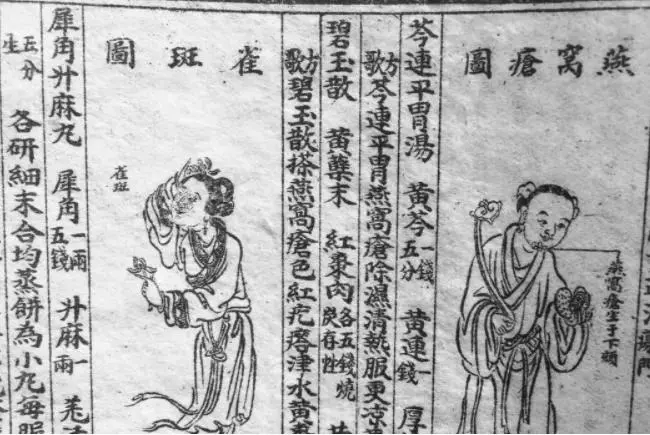 燕窩瘡圖
燕窩瘡生于下頦
芩連平胃湯 黃芩一錢五分 黃連一錢 厚
方歌 芩連平胃燕窩瘡除濕清熱服更涼
碧玉散 黃蘗末 紅棗肉各五錢燒炭存性
方歌 碧玉散搽燕窩瘡色紅疙瘩津水黃
雀斑圖
雀斑
犀角升麻丸 犀角一兩五錢 升麻一兩 羌
生五分 各研細末合均蒸餅為小丸每服